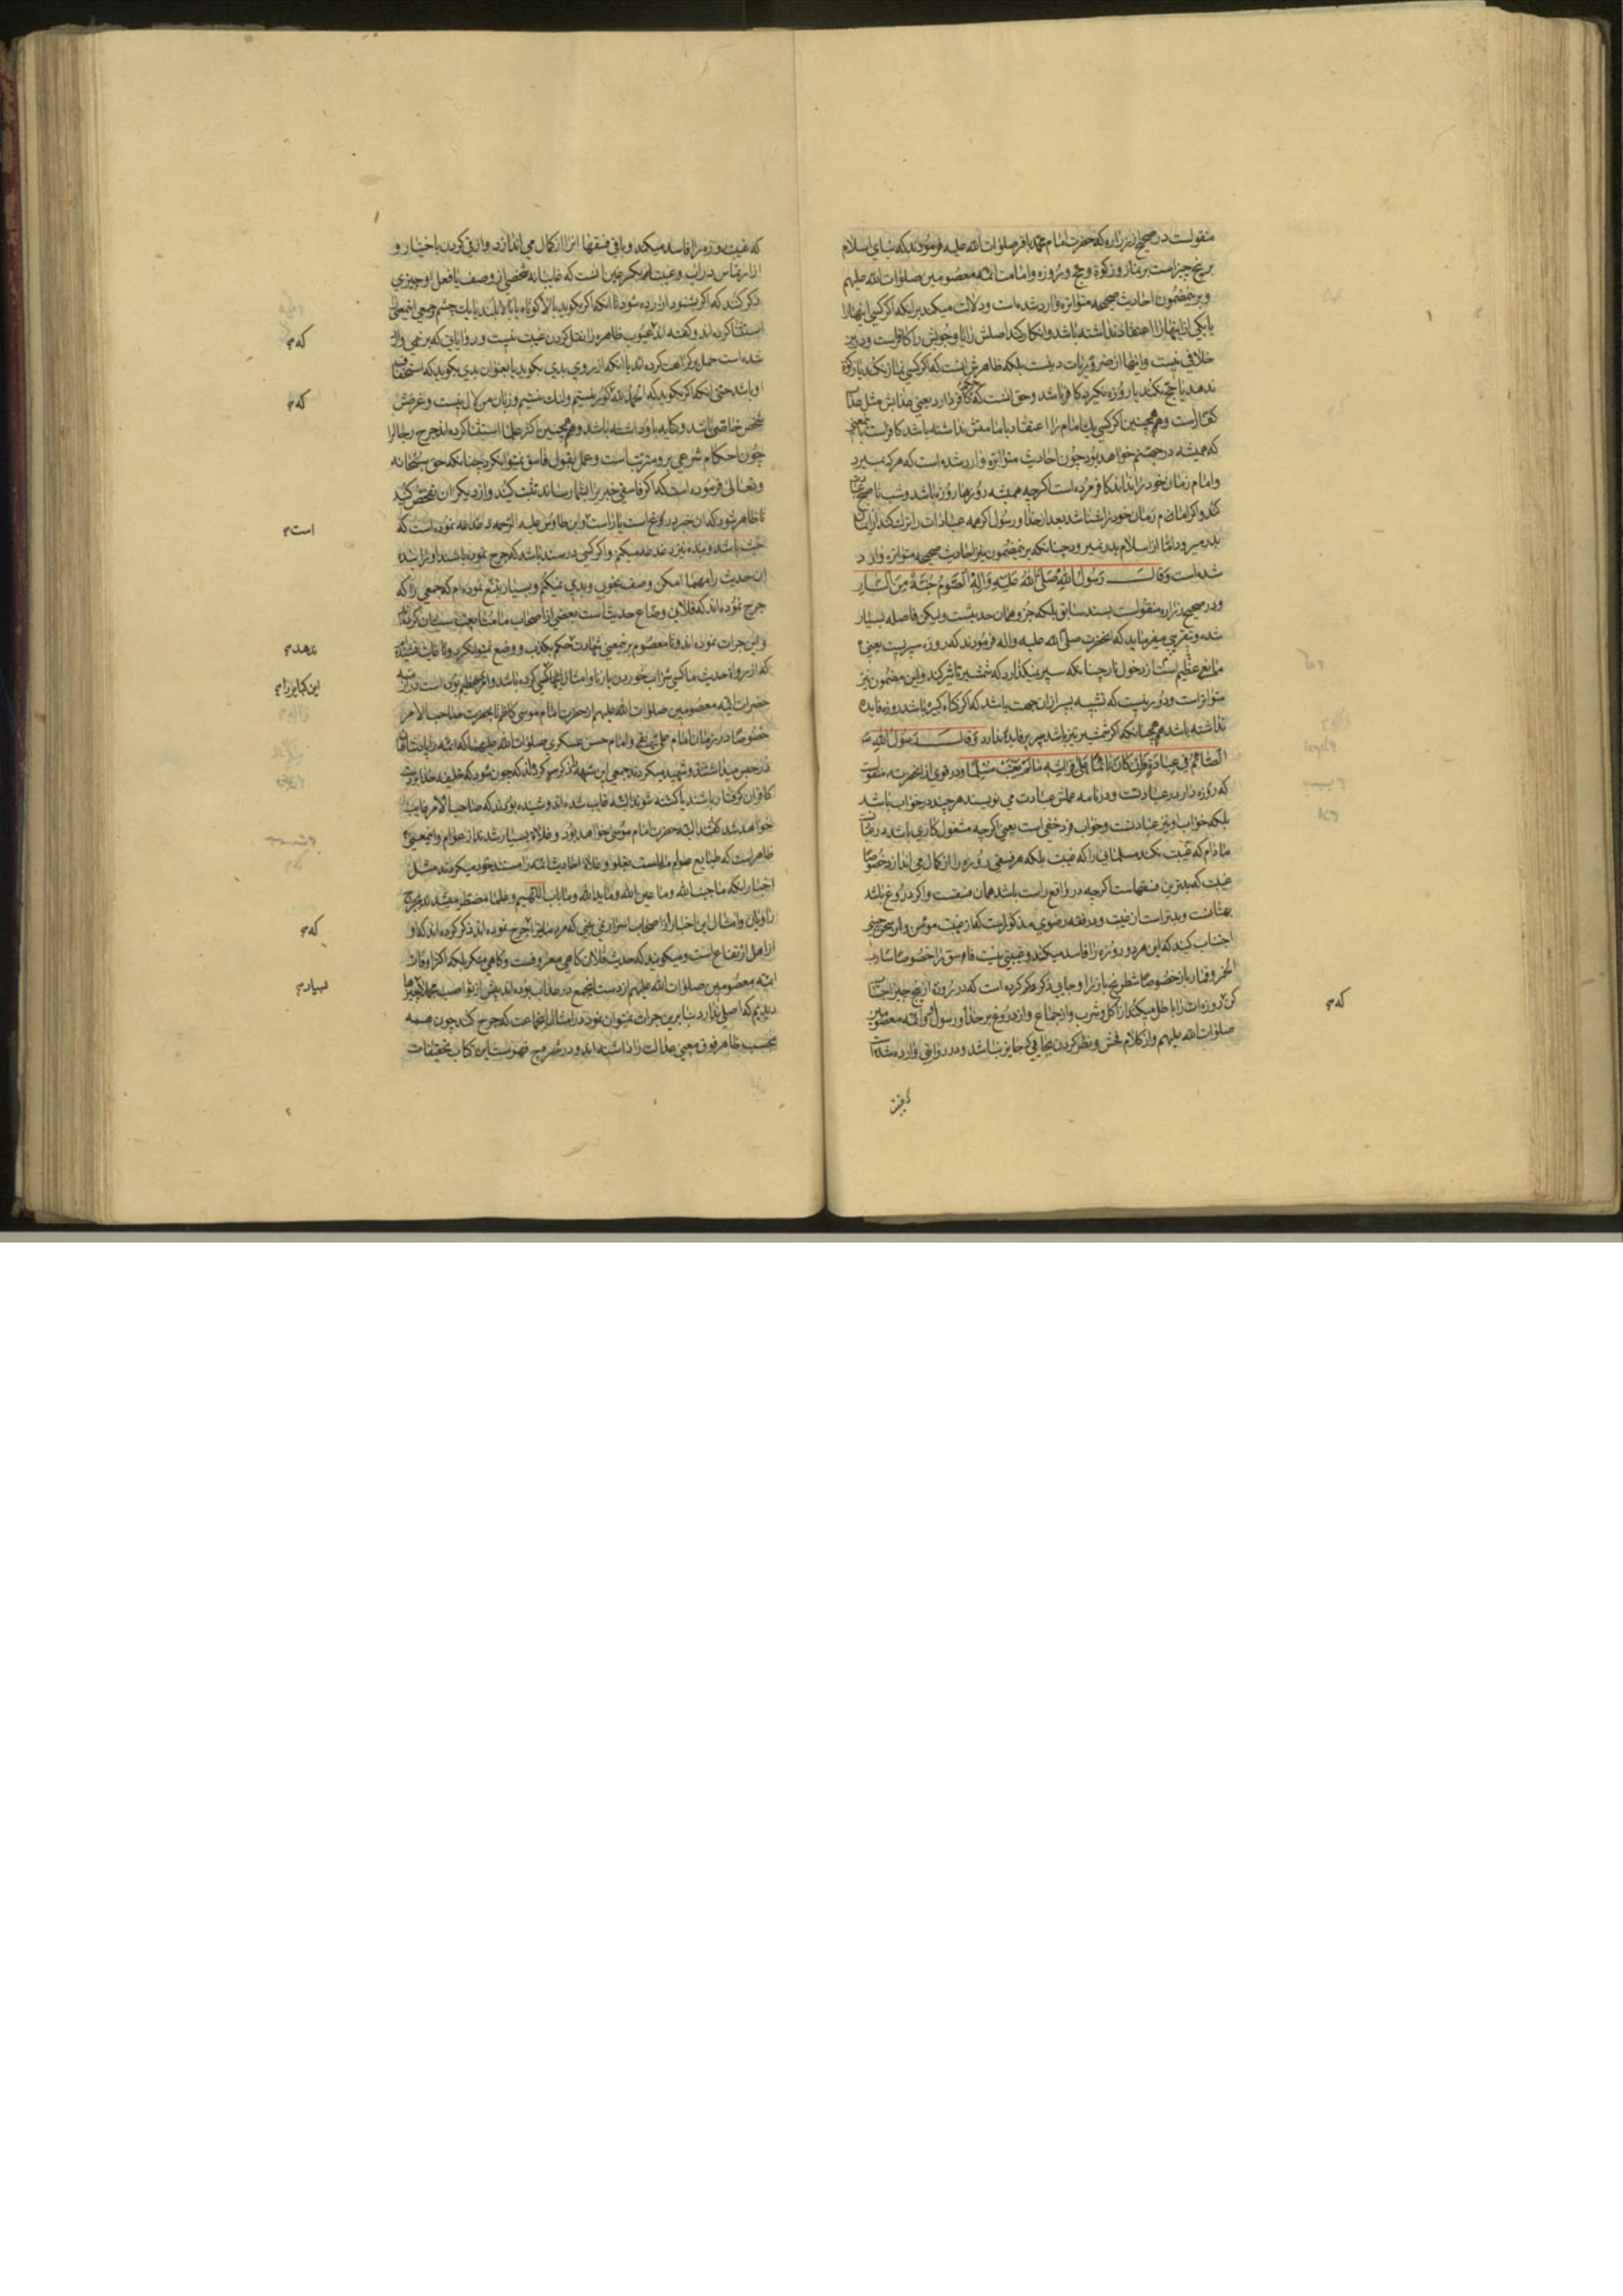 منقولست در صحیح از زراره که حضرت امام محمد باقر صلوات الله علیه فرمودند که بنای اسلام
بر پنج چیز است بر نماز و زکوة و حج و روزه و امامت ائمه معصومین صلوات الله علیهم
و برین مضمون احادیث صحیحه متواتره وارد شده است و دلالت میکند برانکه اگر کسی اینها را
یا یکی از اینها را اعتقاد نداشته باشد و انکار کند اصلش را یا وجوبش را کافر است و درین
خلافی نیست و اینها از ضروریات دینست بلکه ظاهرش اینست که اگر کسی نماز نکند یا زکوة
ندهد یا حج نکند یا روزه نگیرد کافر باشد و حق انست که حکم کافر دارد یعنی عذابش مثل عذاب
کفار است و همچنین اگر کسی یك امام را اعتقاد بامامتش نداشته باشد کافر است باین معنی
که همیشه در جهنم خواهد بود چون احادیث متواتره وارد شده است که هر که بمیرد
و امام زمان خود را نداند کافر مرده است اگر چه همیشه روزها روزه باشد و شب تا صبح عبادت
کند و اگر امام زمان خود را شناشد بعد از خدا و رسول اگر همه عبادات را ترك کند از ایمان
بدر میرود اما از اسلام بدر نمیرود چنانکه برین مضمون نیز احادیث صحیحه متواتره وارد
شده است وَقالَ رَسُولُ اللهِ صَلَّی اللهُ عَلَیْهِ وَآلِهِ اَلصَّوْمُ جُنَّةٌ مِنَ النّارِ
و در صحیح زراره منقولست بسند سابق بلکه جزو همان حدیثست ولیکن فاصله بسیار
شده و بتقریبی میفرماید که انحضرت صلی الله علیه واله فرمودند که روزه سپریست یعنی
مانع عظیم است از دخول نار چنانکه سپر نمیگذارد که شمشیر تاثیر کند و این مضمون نیز
متواتر است و دور نیست که تشبیه بسپر ازان جهت باشد که اگر گناه کبیره باشد روزه فایده
نداشته باشد همچنانکه اگر شمشیر تیز باشد سپر فایده ندارد وَقالَ رَسُولُ اللهِ
الصّائِمُ فی عِبادَةٍ وَاِنْ کانَ نائِماً عَلی فِراشِهِ مالَمْ یَغْتَبْ مُسْلِماً و در قوی از انحضرت منقولست
که روزه دار در عبادتست و در نامه عملش عبادت می نویسند هرچند در خواب باشد
بلکه خواب او نیز عبادتست و خواب فرد خفی است یعنی اگرچه مشغول کاری باشد در عبادتست
مادام که غیبت نکند مسلمانی را که غیبت بلکه هر فسقی روزه را از کمال می اندازد خصوصا
غیبت که بدترین فسقهاست اگرچه در واقع راست باشد همان غیبتست و اگر دروغ باشد
بهتانست و بدتر است از غیبت و در فقه رضوی مذکور است که از غیبت مؤمن و از سخن چینی
اجتناب کنید که این هر دو روزه را فاسد میکند و غیبتی نیست فاسق را خصوصا شارب
الخمر و قمار باز خصوصا شطرنج باز را و جایی ذکر کرده است که در روزه از پنج چیز اجتناب
کن که روزه ات را باطل میکند از اکل و شرب و از جماع و از دروغ بر خدا و رسول و ائمه معصومین
صلوات الله علیهم و از کلام فحش و نظر کردن بجایی که جایز نباشد و در روایتی وارد شده است
که
که غیبت روزه را فاسد میکند و باقی فسقها انرا از کمال می اندازد و از قی کردن باختیار و
از ارتماس در اب و غیبت
ذکر کند که اگر بشنود ازرده شود تا انکه اگر بگوید بالا کوتاه یا بالا بلند یا یك چشم و جمعی این معنی
استثنا کرده اند و گفته اند که عیوب ظاهره را نقل کردن غیبت نیست و روایاتی که برین معنی وارد
شده است حمل بر کراهت کرده اند یا انکه از روی بدی بگوید یا بعنوان بدی بگوید که استخفاف
او باشد حتی انکه اگر بگوید که الحمد لله که کور نیستم و لنك نیستم و زبان من لال نیست و غرضش
شخص خاصی باشد و کنایه باو داشته باشد و همچنین اکثر علما استثنا کرده اند جرح رجال را
چون احکام شرعی برو مترتب است و عمل بقول فاسق نمیتوان کرد چنانکه حق سبحانه
و تعالی فرموده است که اگر فاسقی خبری را بشما رساند تثبت کنید و از دیگران تفحص کنید
تا ظاهر شود که ان خبر دروغ است یا راست و ابن طاوس علیه الرحمه دغدغه نموده است که
غیبت باشد و بنده نیز دغدغه میکنم و اگر کسی در سند باشد که جرح نموده باشند او را بنده
ان حدیث را مهما امکن وصف بخوبی و بدی نمیکنم و بسیار تتبع نموده ام که جمعی را که
جرح نموده اند که فلانی وضاع حدیث است بعضی از اصحاب ما متابعت سنیان کرده اند
و این جرات نموده اند و تا معصوم برین معنی شهادت ندهد حکم بکذب و وضع نمیتوان کرد
که از رواة حدیث ما کسی شراب خوردن یا زنا و امثال اینها کسی کرده باشد
حضرات ائمه معصومین صلوات الله علیهم از حضرت امام موسی کاظم تا بحضرت صاحب الامر
خصوصا در زمان امام علی نقی و امام حسن عسکری صلوات الله علیهما
در حبس میداشتند و شهید میکردند جمعی این شبهه
کافران گرفتار باشند یا کشته شوند البته غایب شده اند و شنیده بودند که صاحب الامر غایب
خواهد شد گفتند البته حضرت امام موسی خواهد بود و غلاة بسیار شدند از عوام و این معنی
ظاهر است که طبایع عوام مایلست بغلو و غلاة احادیث ائمه را مستند خود میکردند مثل
اخبار اینکه ما جنب الله و ما عین الله و ما ید الله و ما باب اللهیم و علما مضطر میشدند بجرح
راویان و امثال این اخبار
از اهل ارتفاع است و میگویند که حدیث فلان گاهی معروفست و گاهی منکر بلکه اکثر اوقات
ائمه معصومین صلوات الله علیهم از دست این جمع در عذاب بوده اند بیش از نواصب
دیدیم که اصلی ندارد بنابرین جرات نمیتوان نمود در امثال این جماعت که جرح کنند چون همه
بحسب ظاهر فوق معنی عدالت را داشته اند و در شروح فهرست این کتاب تحقیقات
که
که
است
ندهد
این کبایر را
که
بسیار